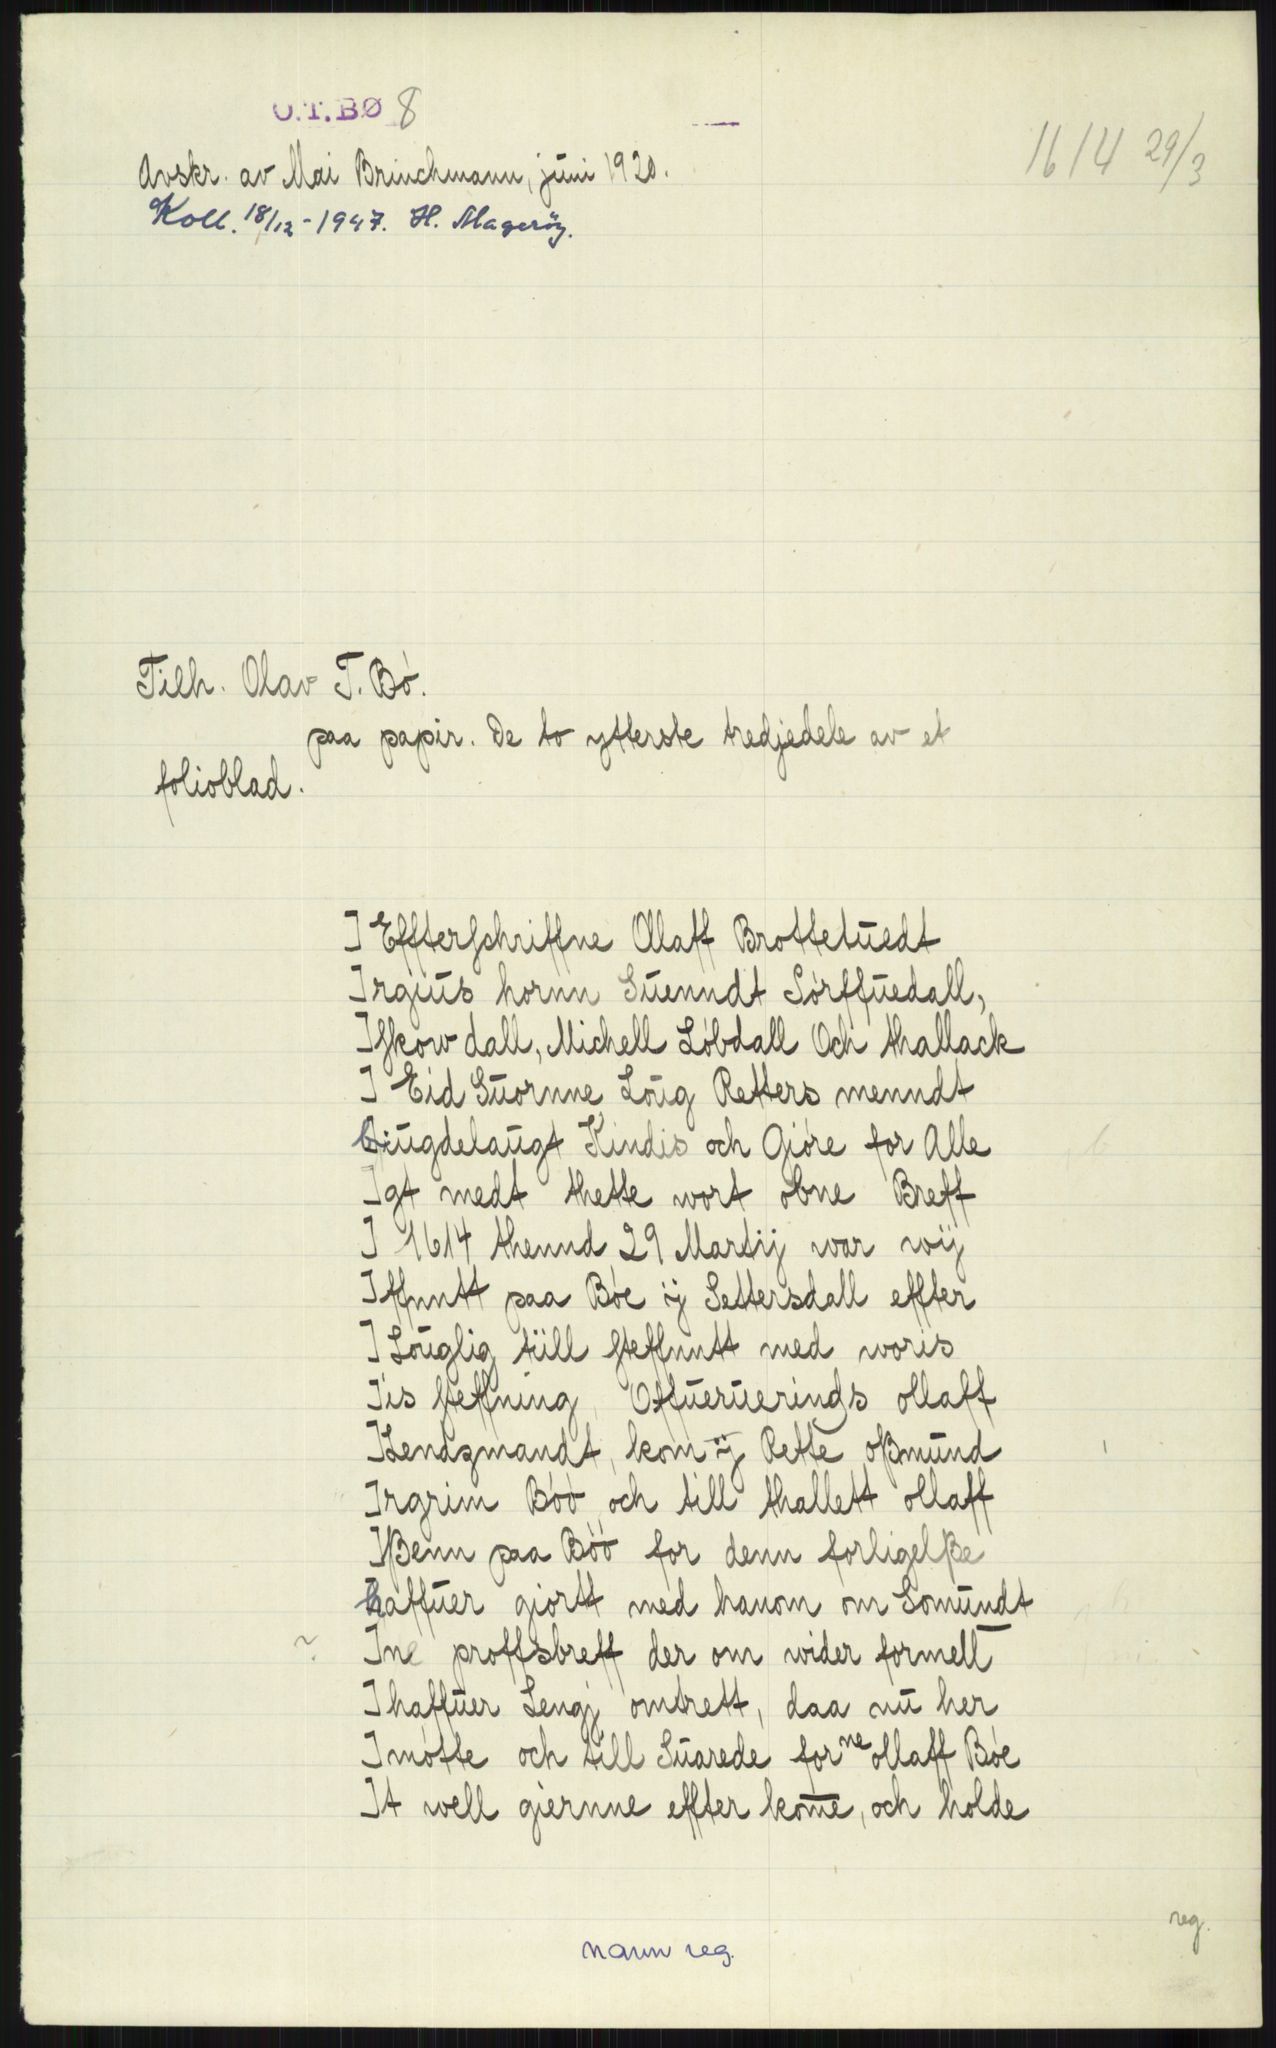 O.T.BØ 8
1614 29/3
Avskr. av Mai Brinchmann, juni 1920.
Koll. 18/12 - 1947. H. Magerøy.
Tilh. Olav T. Bø.
paa papir. De to ytterste tredjedele av et
folioblad.
] Effterschriffne Ollaff Brottetuedt
]rgius hornn Suenndt Sørffuedall,
]skow dall, Michell Løbdall Och thallack
] Eid Suornne Loug Retters menndt
biugdelaugt Kindis och Giøre for Alle
]gt medt thette wort obne Breff
] 1614 thennd 29 Martij war wij
]ffnutt paa Bøe ij Settersdall effter
] Louglig tiill steffnutt med woris
]is steffning, Offueruerinds ollaff
]Lendzmandt, kom ij Rette oßmund
]rgrim Böö och till thallett ollaff
]ßenn paa Böö for denn forligelße
haffuer giørtt med hanom om Somundt
? ]ne proffsbreff der om wider formelt
] haffuer Lengj omtrett, daa nu her
] møtte och till Suarede forne ollaff Bøe
]t well giernne effter kome, och holde
reg.
navn reg.